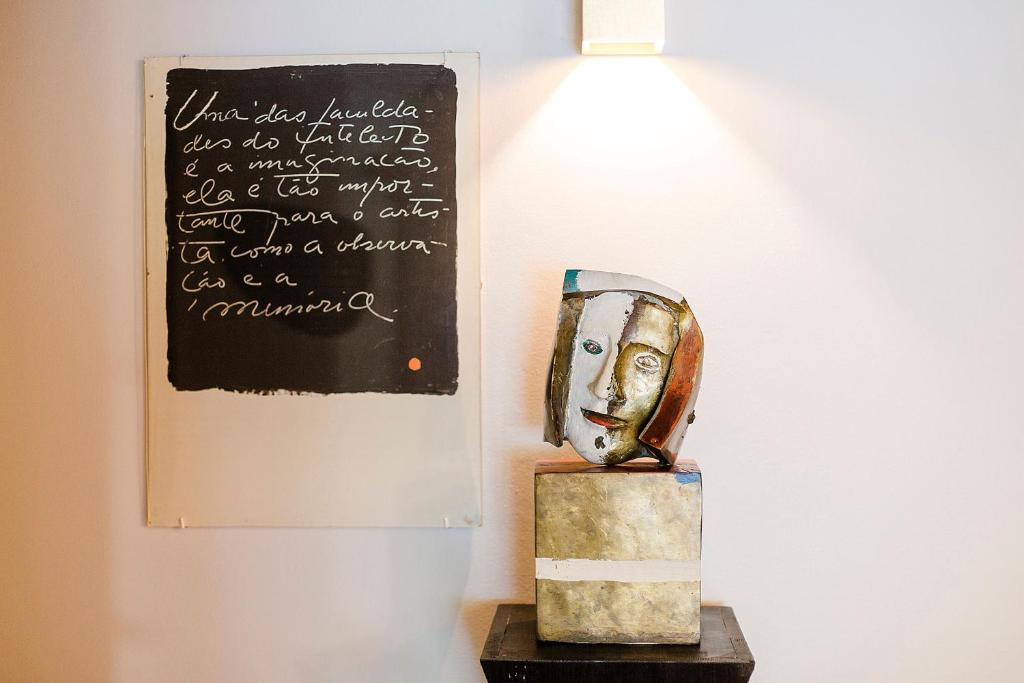 Uma das faculda-
des do intelecto
é a imaginacão,
ela é tão impor-
tante para o artis-
ta como a observa-
cão e a
memória.